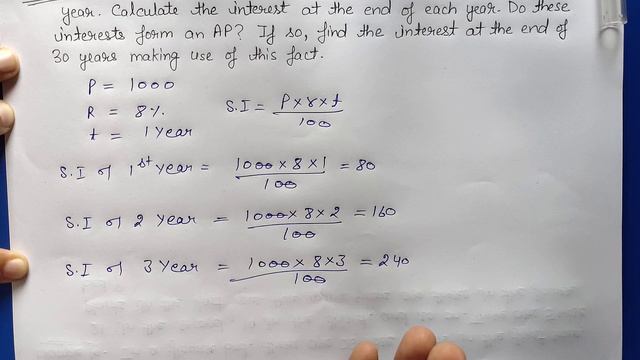 year. Calculate the interest at the end of each year. Do these
interests form an AP? If so, find the interest at the end of
30 years making use of this fact.
P = 1000
R = 8%
t = 1 Year
S.I = P×r×t / 100
S.I of 1st Year = 1000×8×1 / 100 = 80
S.I of 2 Year = 1000×8×2 / 100 = 160
S.I of 3 Year = 1000×8×3 / 100 = 240